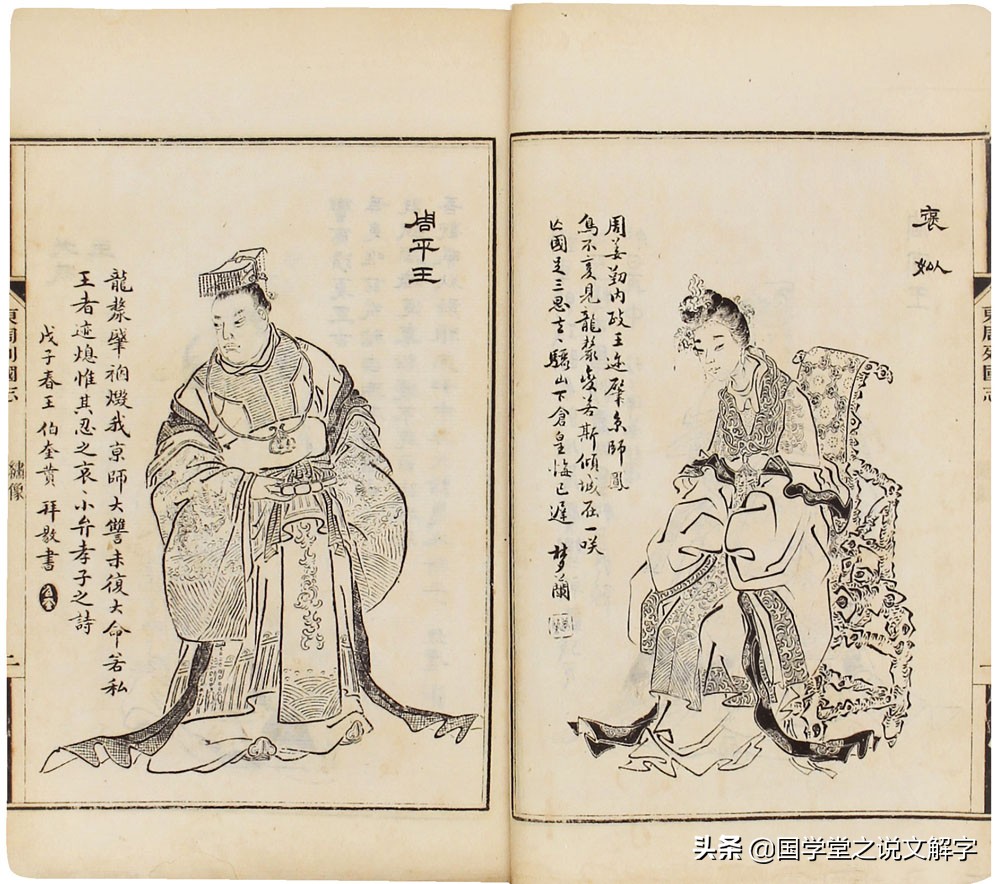 襃姒
周姜勤内政王迹肇京師鳳
鳥不复見龍漦變若斯傾城在一咲
亾國足三思去〻驪山下倉皇悔已遲 夢蘭
東周列國志
周平王
龍漦肇禍燬我京師大讐未復大命若私
王者迹熄惟其忍之哀〻小弁孝子之詩
戊子春王伯奎拜敬書
東周列國志 繡像 二
头条 @国学堂之说文解字